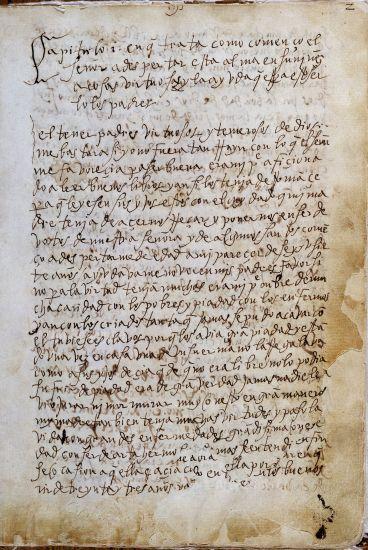 capitulo 1 en q trata como començo el
señor a despertar esta alma en su niñez
a cosas virtuosas y la ayuda q es para esto ser
lo los padres
el tener padres virtuosos y temerosos de dios
me bastara si yo no fuera tan rruyn con lo q el señor
me favorecia para ser buena era mi padre aficiona
do a leer buenos libros y ansi los tenia de rromançe
para q leyesen sus yjos estos con el cuydado q mi ma
dre tenia de açernos rreçar y ponernos en ser de
votos de nuestra señora y de algunos santos comen
ço a despertarme de edad a mi parecer de seys u sie
te años ayudavame no ver en mis padres favor si
no para la virtud tenian muchas era mi padre onbre de mu
cha caridad con los pobres y piadad con los enfermos
y aun con los criados tanta q jamas se pudo acabar con
el tuviese esclavos porq los avia gran piadad y estan
do una vez en casa una de un su ermano la rregalava
como a sus yjos deçia q de q no era libre no lo podia
sufrir de piadad era de gran verdad jamas nadie le
vio jurar ni mormurar muy onesto en gran manera
mi madre tan bien tenia muchas virtudes y paso la
vida con grandes enfermedades grandisima onesti
dad con ser de arta ermosura jamas se entendio
diese ocasion a q ella açia caso de ella porq
de treynta y tres años ya